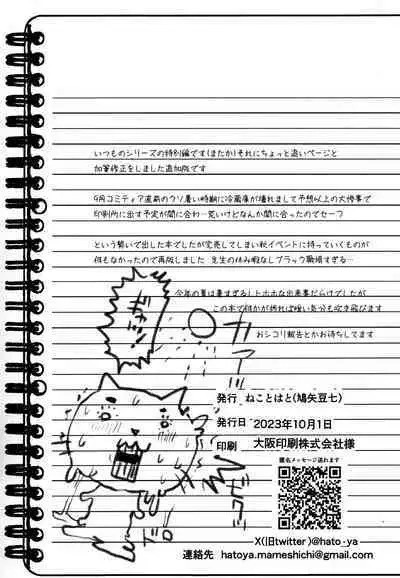 いつものシリーズの特別編です(またか)それにちょっと追いページと
加筆修正をしました追加版です
9月コミティア直前のクソ暑い時期に冷蔵庫が壊れまして予想以上の大惨事で
印刷所に出す予定が間に合わ…ないけどなんか間に合ったのでセーフ
という勢いで出した本でしたが完売してしまい秋イベントに持っていくものが
何もなかったので再版しました…先生の休み暇なしブラック職場すぎる…
今年の夏は暑すぎるしトホホな出来事だらけでしたが
この本で何かが折れば暗い気分も吹き飛びます
おシコリ報告とかお待ちしてます
発行 ねことはと(鳩矢豆七)
発行日 2023年10月1日
印刷 大阪印刷株式会社様
匿名メッセージ送れます
X(旧twitter)@hato_ya
連絡先 hatoya.mameshichi@gmail.com